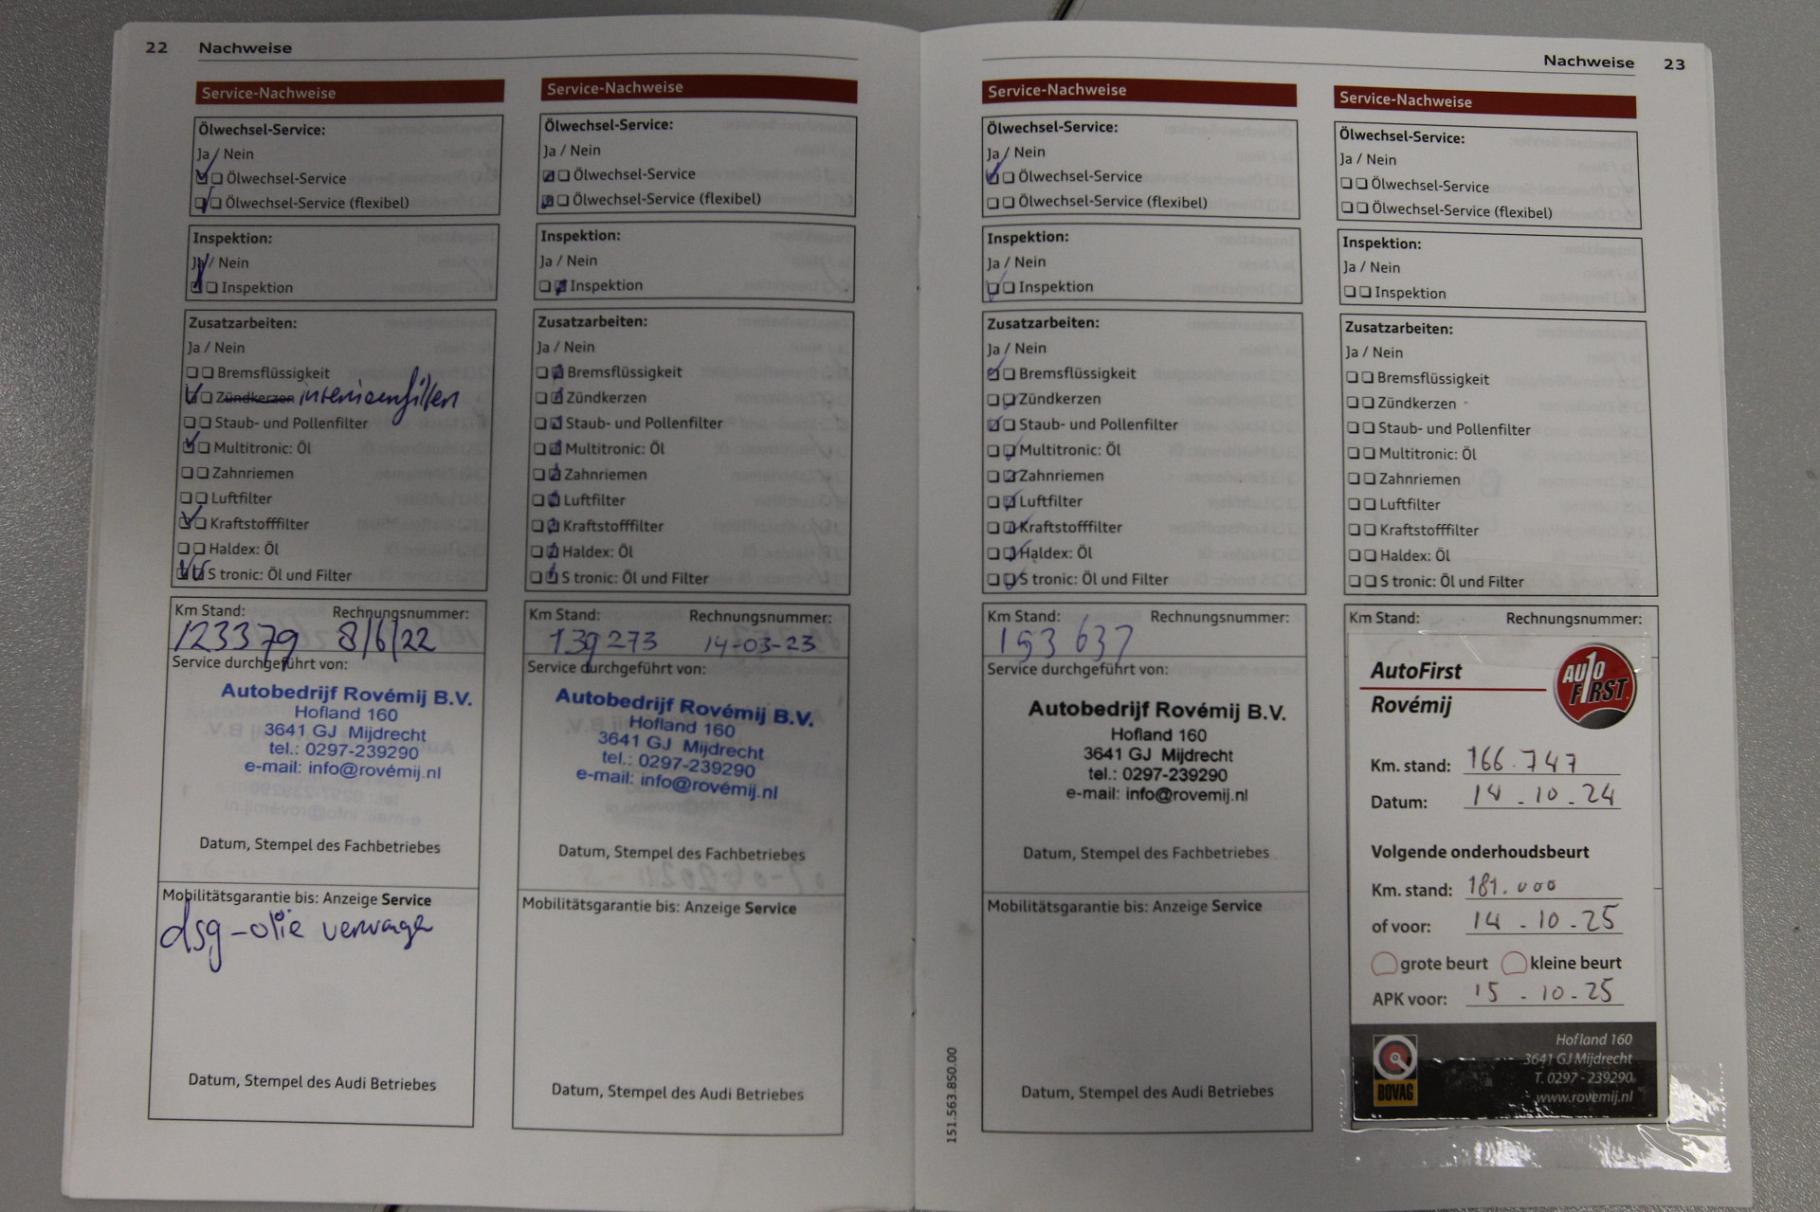 22 Nachweise
Service-Nachweise
Ölwechsel-Service:
Ja / Nein
Ölwechsel-Service
Ölwechsel-Service (flexibel)
Inspektion:
Ja / Nein
Inspektion
Zusatzarbeiten:
Ja / Nein
Bremsflüssigkeit
Zündkerzen
Staub- und Pollenfilter
Multitronic: Öl
Zahnriemen
Luftfilter
Kraftstofffilter
Haldex: Öl
S tronic: Öl und Filter
Km Stand: Rechnungsnummer:
123379 8/6/22
Service durchgeführt von:
Autobedrijf Rovémij B.V.
Hofland 160
3641 GJ Mijdrecht
tel.: 0297-239290
e-mail: info@rovémij.nl
Datum, Stempel des Fachbetriebes
Mobilitätsgarantie bis: Anzeige Service
dsg-olie
Datum, Stempel des Audi Betriebes
Service-Nachweise
Ölwechsel-Service:
Ja / Nein
Ölwechsel-Service
Ölwechsel-Service (flexibel)
Inspektion:
Ja / Nein
Inspektion
Zusatzarbeiten:
Ja / Nein
Bremsflüssigkeit
Zündkerzen
Staub- und Pollenfilter
Multitronic: Öl
Zahnriemen
Luftfilter
Kraftstofffilter
Haldex: Öl
S tronic: Öl und Filter
Km Stand: Rechnungsnummer:
139273 14-03-23
Service durchgeführt von:
Autobedrijf Rovémij B.V.
Hofland 160
3641 GJ Mijdrecht
tel.: 0297-239290
e-mail: info@rovémij.nl
Datum, Stempel des Fachbetriebes
Mobilitätsgarantie bis: Anzeige Service
Datum, Stempel des Audi Betriebes
Nachweise 23
Service-Nachweise
Ölwechsel-Service:
Ja / Nein
Ölwechsel-Service
Ölwechsel-Service (flexibel)
Inspektion:
Ja / Nein
Inspektion
Zusatzarbeiten:
Ja / Nein
Bremsflüssigkeit
Zündkerzen
Staub- und Pollenfilter
Multitronic: Öl
Zahnriemen
Luftfilter
Kraftstofffilter
Haldex: Öl
S tronic: Öl und Filter
Km Stand: Rechnungsnummer:
153 637
Service durchgeführt von:
Autobedrijf Rovémij B.V.
Hofland 160
3641 GJ Mijdrecht
tel.: 0297-239290
e-mail: info@rovemij.nl
Datum, Stempel des Fachbetriebes
Mobilitätsgarantie bis: Anzeige Service
Datum, Stempel des Audi Betriebes
151.563.BS0.00
Service-Nachweise
Ölwechsel-Service:
Ja / Nein
Ölwechsel-Service
Ölwechsel-Service (flexibel)
Inspektion:
Ja / Nein
Inspektion
Zusatzarbeiten:
Ja / Nein
Bremsflüssigkeit
Zündkerzen
Staub- und Pollenfilter
Multitronic: Öl
Zahnriemen
Luftfilter
Kraftstofffilter
Haldex: Öl
S tronic: Öl und Filter
Km Stand: Rechnungsnummer:
AutoFirst
Rovémij
AUTO
FIRST
Km. stand: 166.747
Datum: 14-10-24
Volgende onderhoudsbeurt
Km. stand: 181.000
of voor: 14-10-25
grote beurt kleine beurt
APK voor: 15-10-25
BOVAG
Hofland 160
3641 GJ Mijdrecht
T. 0297 - 239290
www.rovemij.nl